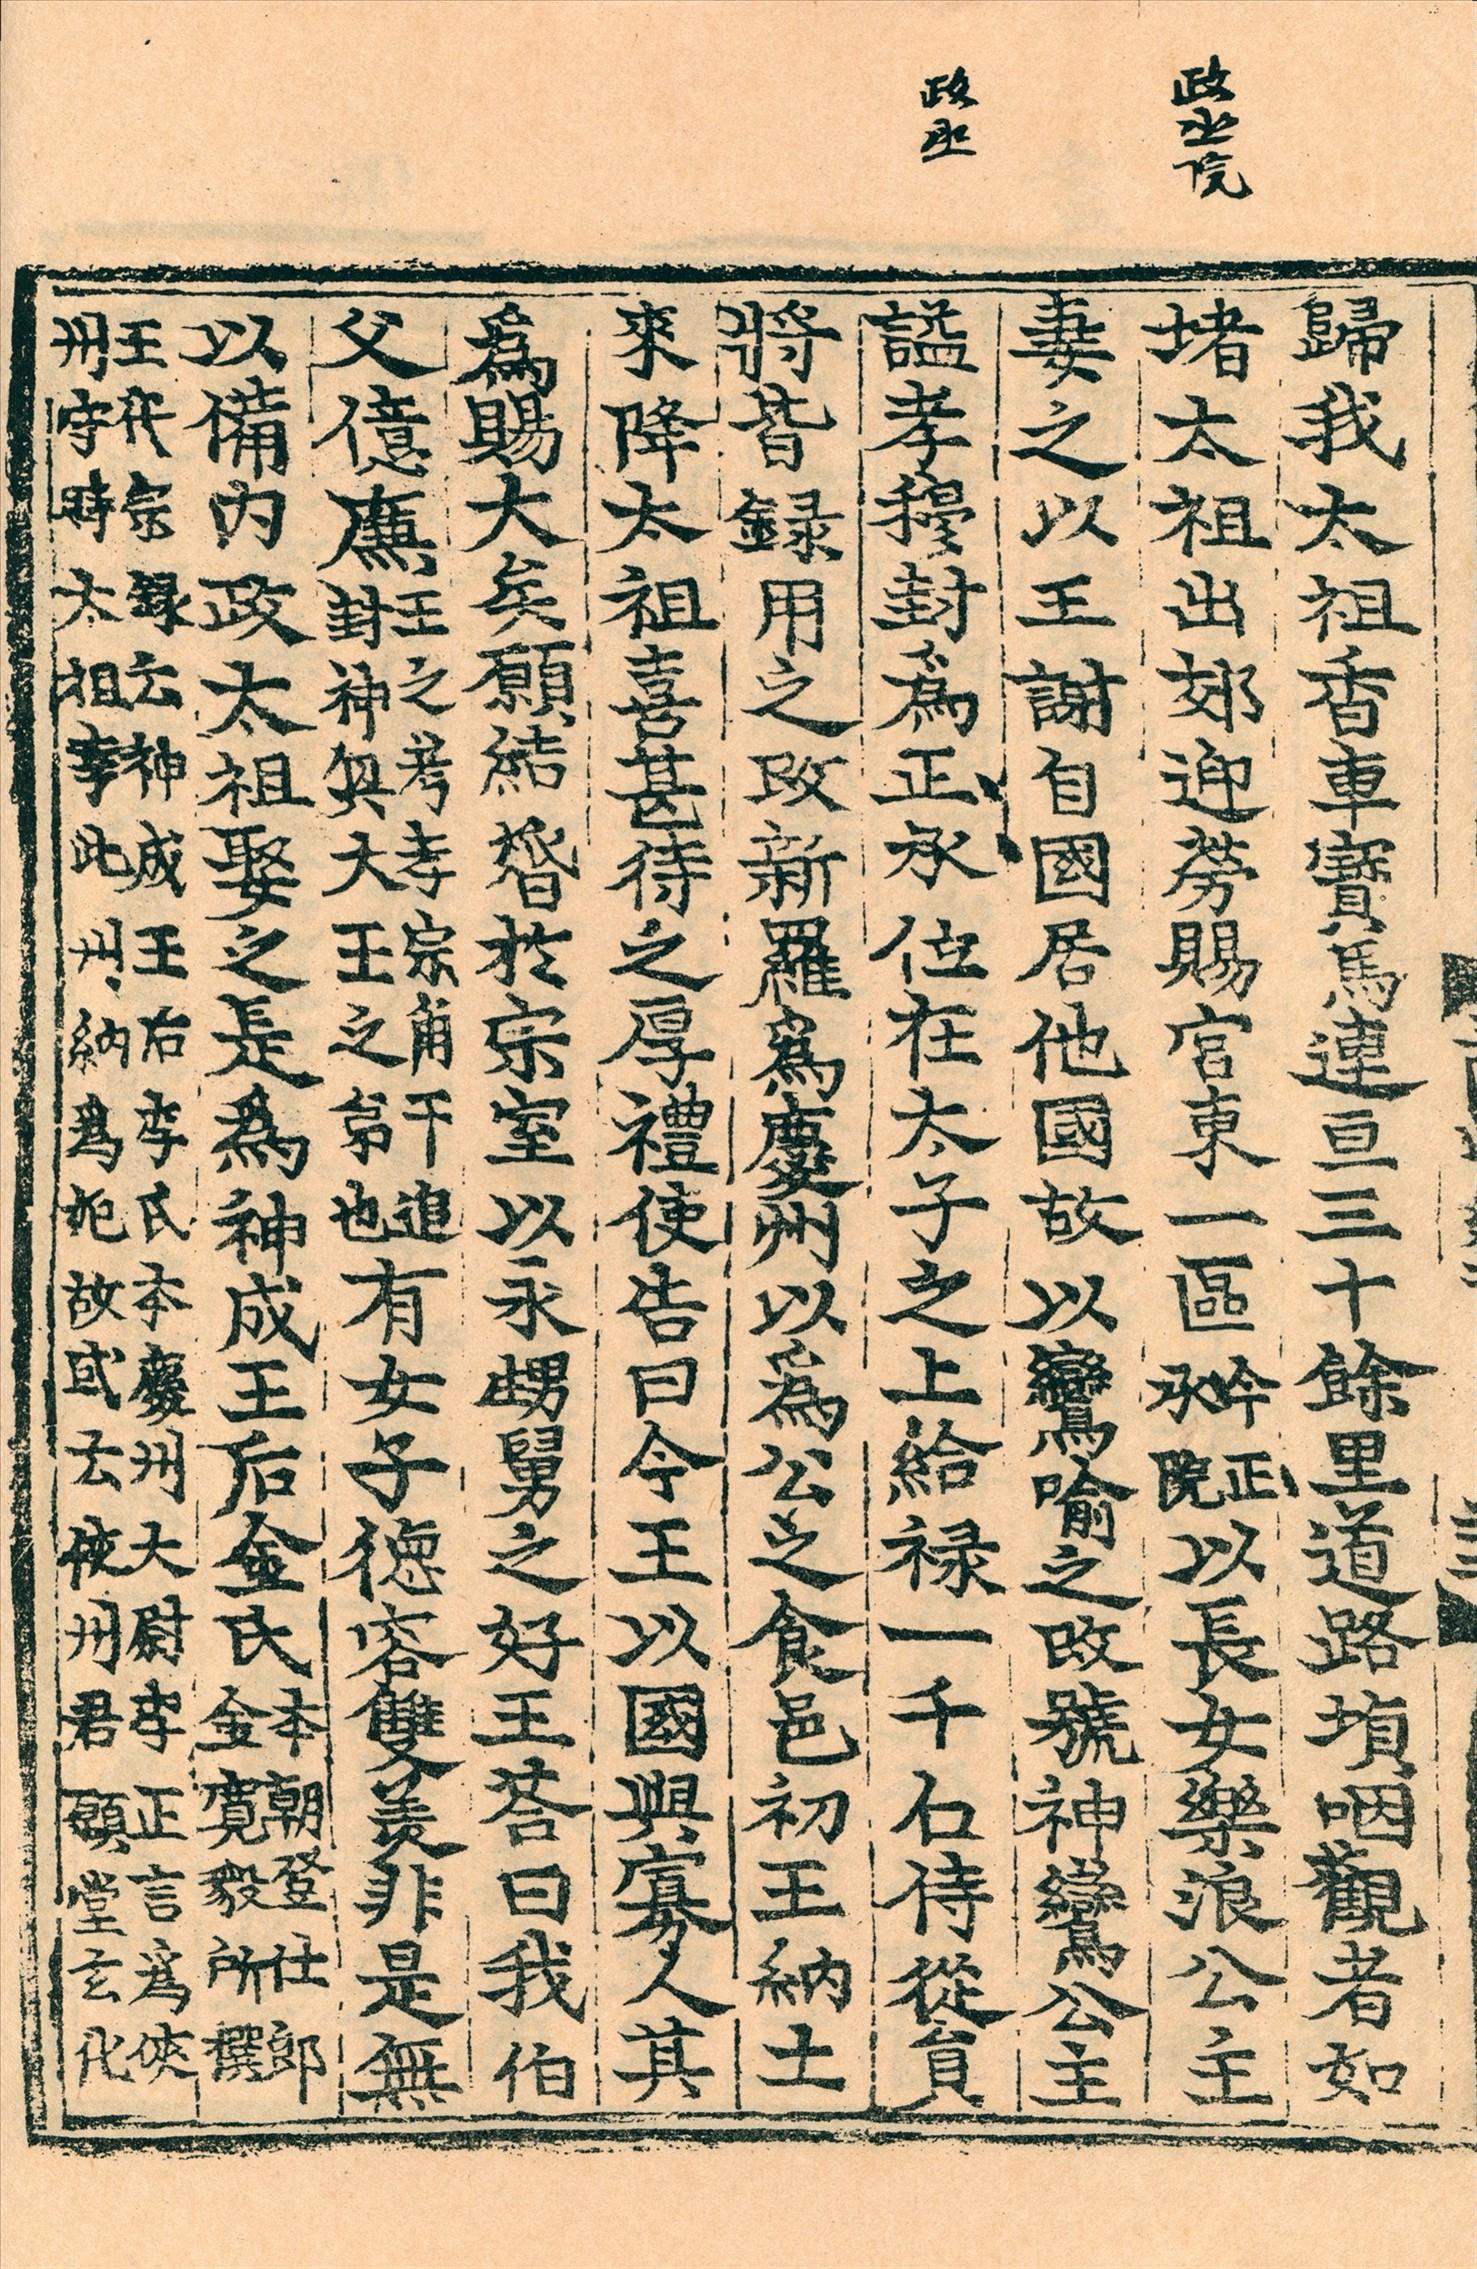 政丞院
政丞
歸我太祖香車寶馬連亘三十餘里道路塡咽觀者如
堵太祖出郊迎勞賜宮東一區今正承院以長女樂浪公主
妻之以王謝自國居他國故以鸞喩之改號神鸞公主
諡孝穆封爲正承位在太子之上給祿一千石侍從員
將皆録用之改新羅爲慶州以爲公之食邑初王納土
來降太祖喜甚待之厚禮使告曰今王以國與寡人其
爲賜大矣願結㛰於宗室以永甥舅之好王荅曰我伯
父億廉王之考孝宗角干追封神興大王之弟也有女子德容雙美非是無
以備內政太祖娶之是爲神成王后金氏本朝登仕郎金寬毅所撰
王代宗録云神成王后李氏本慶州大尉李正言爲俠
州守時太祖幸此州納爲妃故或云俠州君願堂玄化